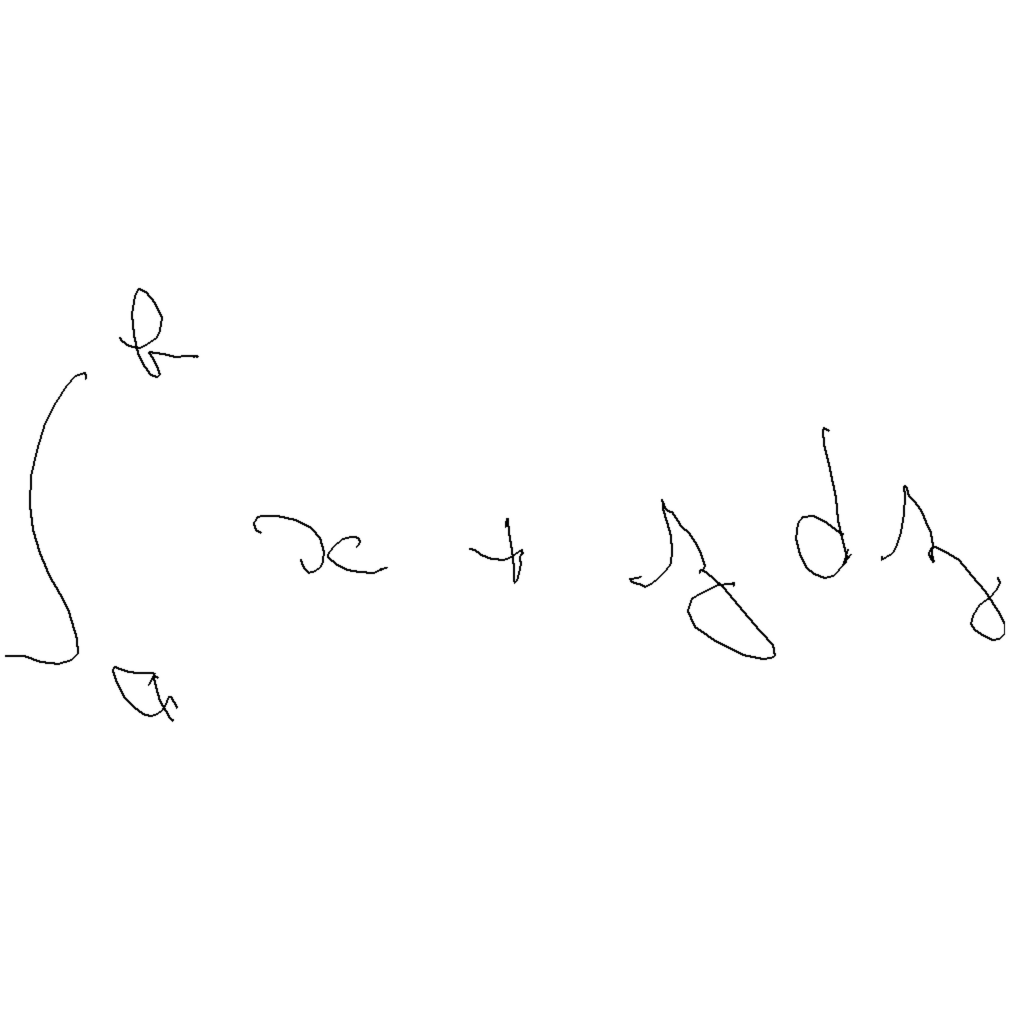 ∫_a^b x + y dy